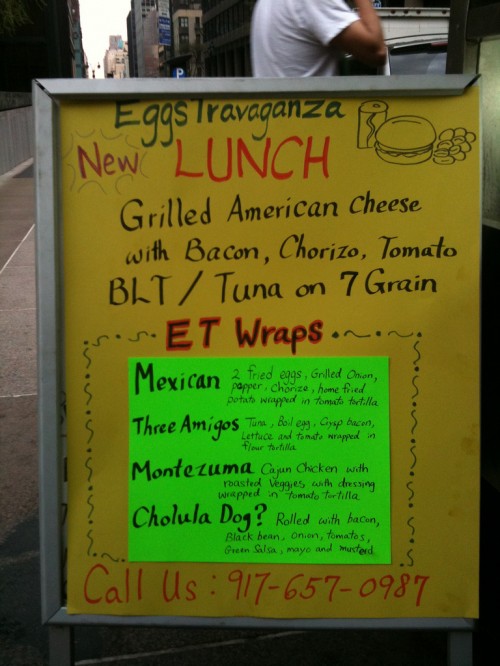 EggsTravaganza
New LUNCH
Grilled American Cheese
with Bacon, Chorizo, Tomato
BLT / Tuna on 7 Grain
ET Wraps
Mexican 2 fried eggs, Grilled Onion,
pepper, chorizo, home fried
potato wrapped in tomato tortilla
Three Amigos Tuna, Boil egg, Crysp bacon,
Lettuce and tomato wrapped in
flour tortilla
Montezuma Cajun Chicken with
roasted Veggies with dressing
wrapped in tomato tortilla
Cholula Dog? Rolled with bacon,
Black bean, onion, tomatos,
Green Salsa, mayo and musterd
Call Us : 917-657-0987
P